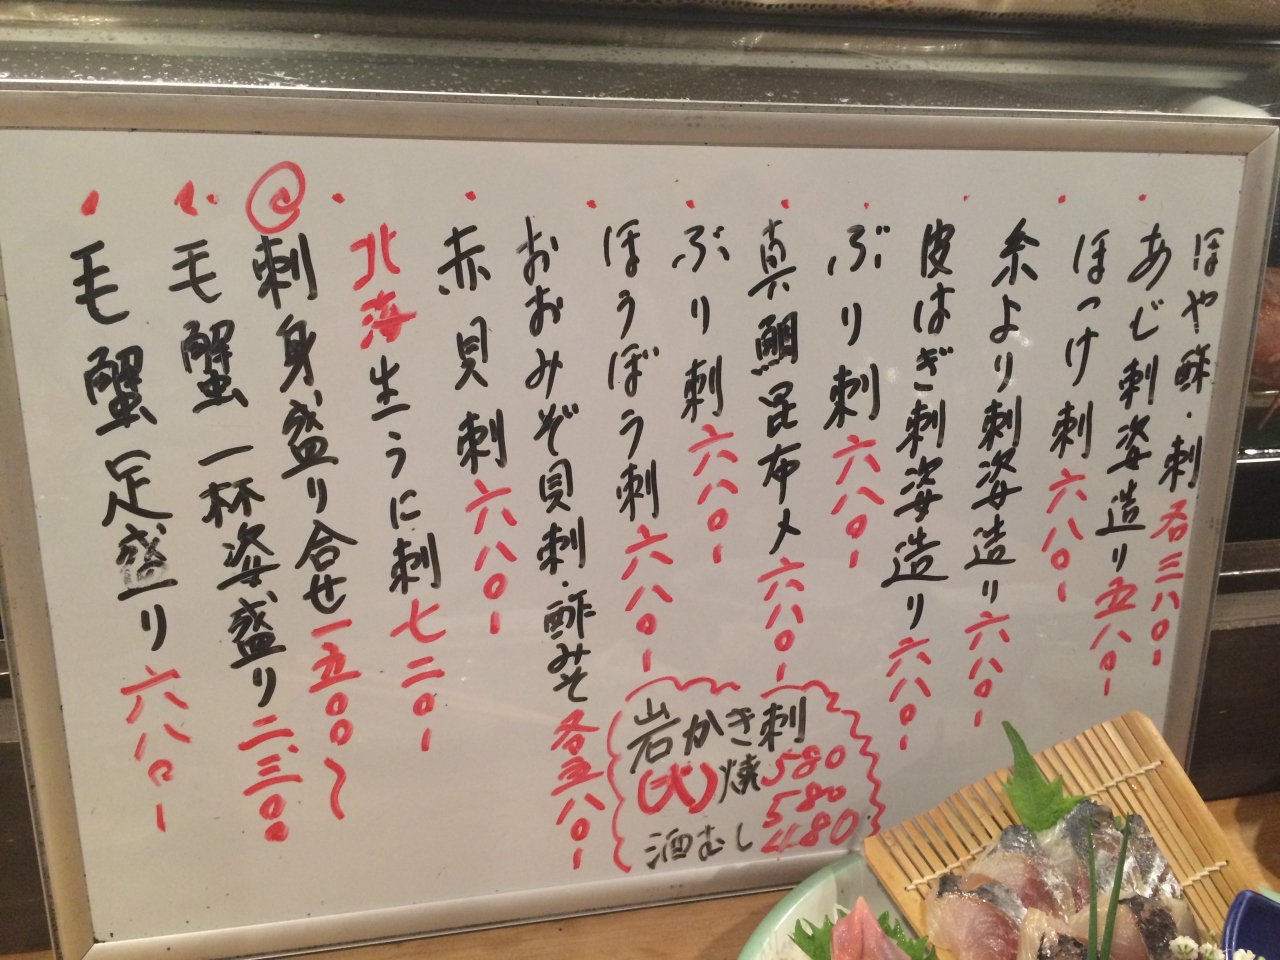 ほや酢・刺 各三八〇ー
あじ刺姿造り 五八〇ー
ほっけ刺 六八〇ー
糸より刺姿造り 六八〇ー
皮はぎ刺姿造り 六八〇ー
ぶり刺 六八〇ー
真鯛昆布〆 六八〇ー
ぶり刺 六八〇ー
ほうぼう刺 六八〇ー
おおみぞ貝刺・酢みそ 各五八〇ー
赤貝刺 六八〇ー
北海生うに刺 七二〇ー
刺身盛り合せ 一五〇〇〜
毛蟹一杯姿盛り 二、三〇〇
毛蟹足盛り 六八〇ー
岩かき刺 580
(大) 焼 580
酒むし 480